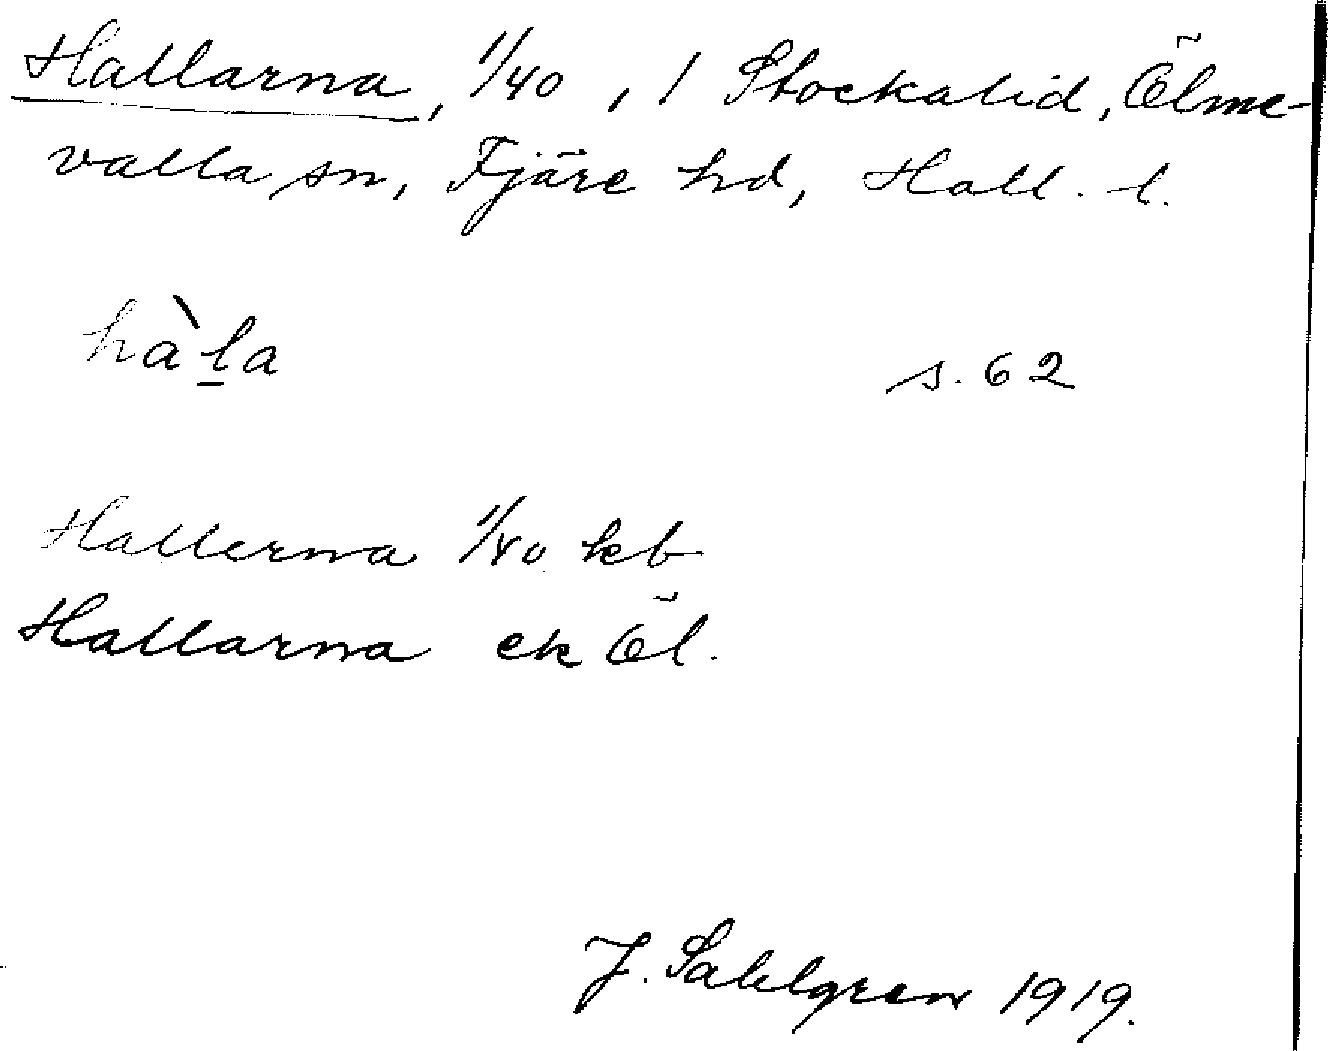 Hallarna, 1/40, 1 Stockalid, Ölme-
valla sn, Fjäre hd, Hall. l.
hàl̲a
s. 62
Hallerna 1/40 kb
Hallarna ek Öl.
J. Sahlgren 1919.